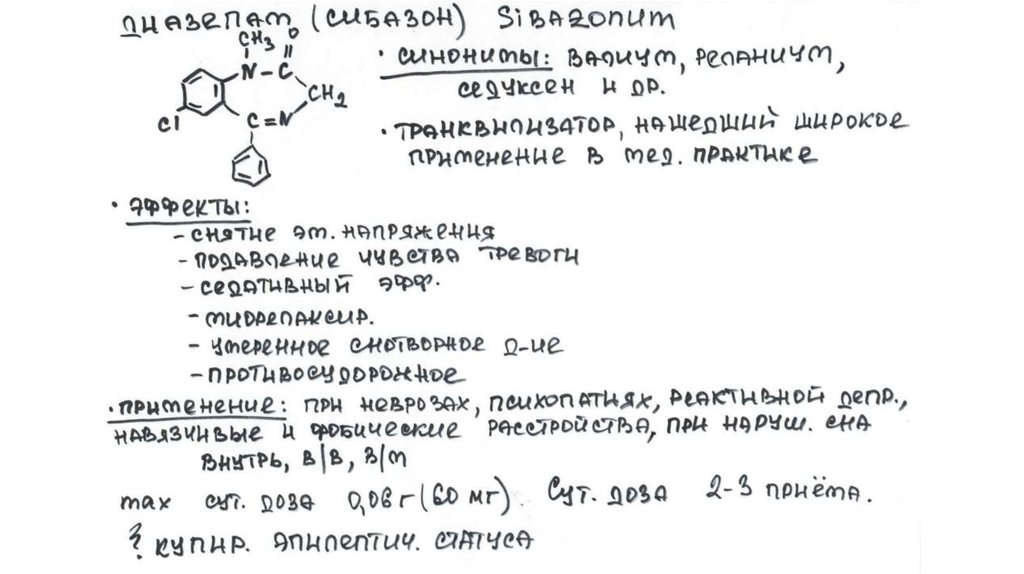 Диазепам (Сибазон) Sibazonum
CH3 O
N – C
CH2
Cl C=N
· Синонимы: Валиум, Реланиум,
Седуксен и др.
· Транквилизатор, нашедший широкое
применение в мед. практике
· Эффекты:
- снятие эм. напряжения
- подавление чувства тревоги
- седативный эфф.
- миорелаксир.
- умеренное снотворное д-ие
- противосудорожное
· Применение: при неврозах, психопатиях, реактивной депр.,
навязчивые и фобические расстройства, при наруш. сна
внутрь, в/в, в/м
max сут. доза 0,06 г (60 мг). Сут. доза 2-3 приёма.
? купир. эпилептич. статуса